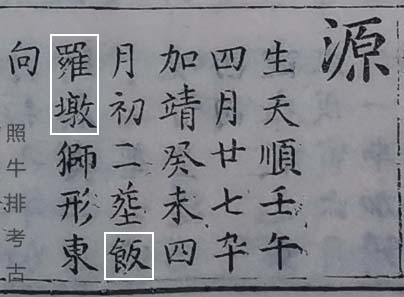 源
生天順壬午
四月廿七卒
加靖癸未四
月初二塟飯
羅墩獅形東
向
照牛排考古